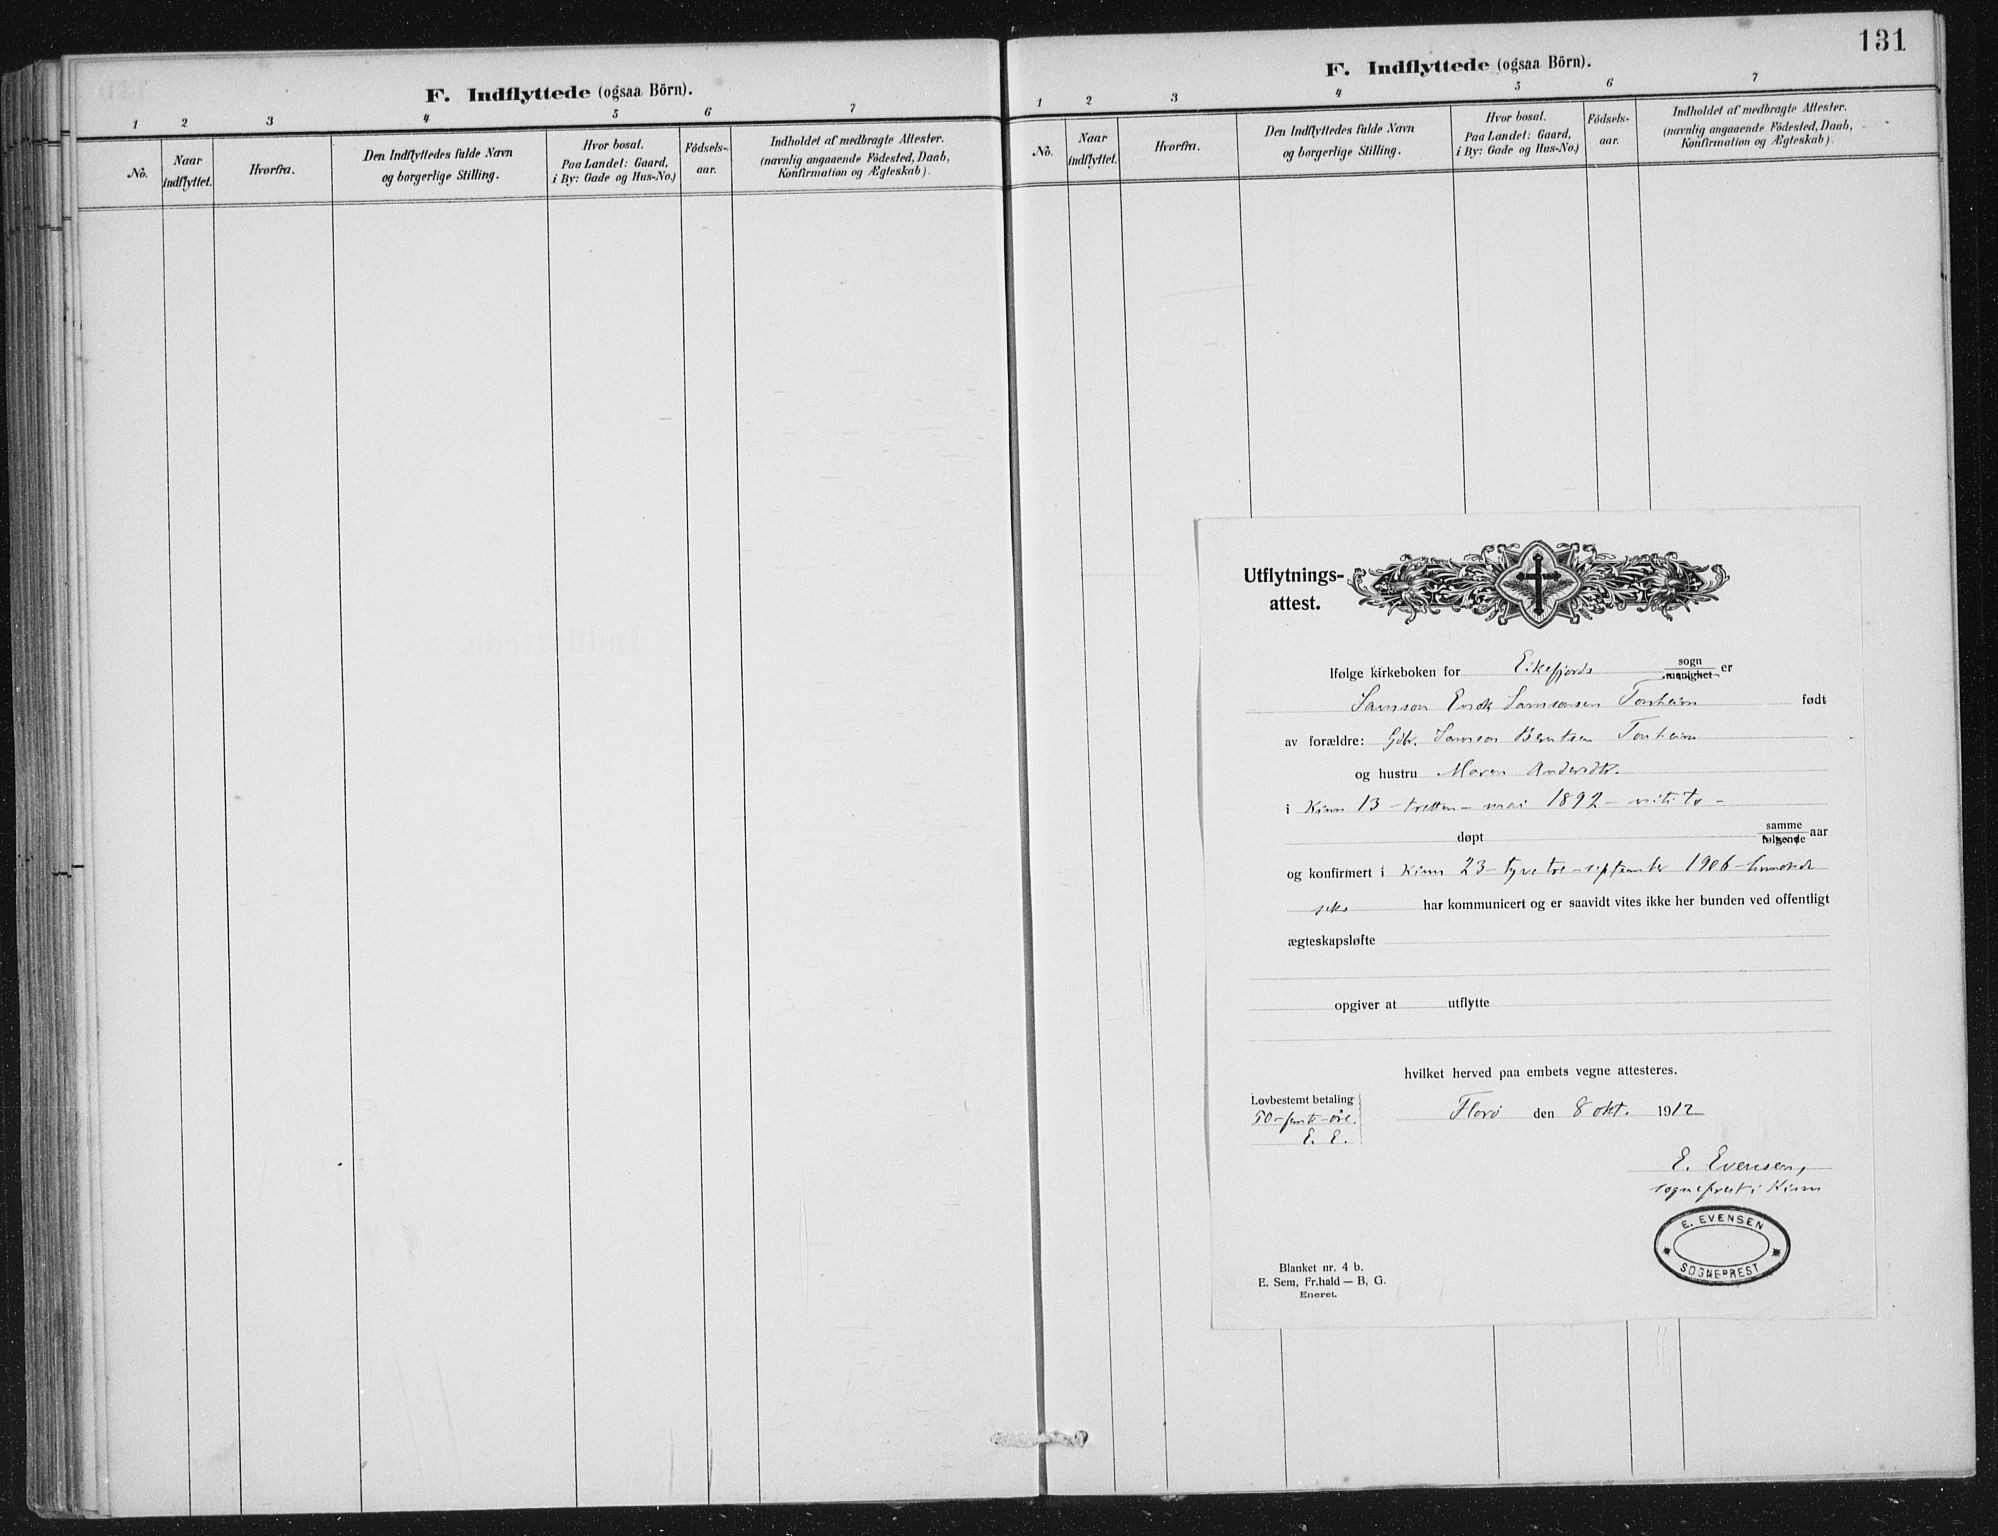 F. Indflyttede (ogsaa Börn).
1 2 3 4 5 6 7
No.
Naar indflyttet.
Hvorfra.
Den Indflyttedes fulde Navn
og borgerlige Stilling.
Hvor bosat.
Paa Landet: Gaard,
i By: Gade og Hus-No.)
Födsels-
aar.
Indholdet af medbragte Attester.
(navnlig angaaende Födested, Daab,
Konfirmation og Ægteskab).
131
F. Indflyttede (ogsaa Börn).
1 2 3 4 5 6 7
No.
Naar
indflyttet.
Hvorfra.
Den Indflyttedes fulde Navn
og borgerlige Stilling.
Hvor bosat.
Paa Landet: Gaard,
i By: Gade og Hus-No.)
Födsels-
aar.
Indholdet af medbragte Attester.
(navnlig angaaende Födested, Daab,
Konfirmation og Ægteskab).
Utflytnings-
attest.
Ifølge kirkeboken for Eikefjords sogn menighet er
Samson Samsonsen Tonheim født
av forældre: Gbr. Samson Berntsen Tonheim
og hustru Maren
i Kinn 13 - tretten - mai 1892 - nitito -
døpt samme følgende aar
og konfirmert i Kinn 23 - tyvetre - september 1906 - hundrede
seks har kommunicert og er saavidt vites ikke her bunden ved offentligt
ægteskapsløfte
opgiver at utflytte
hvilket herved paa embets vegne attesteres.
Lovbestemt betaling
50 - femti - øre.
E. E.
Florø den 8 okt. 1912
E. Evensen,
sogneprest i Kinn
E. EVENSEN
SOGNEPREST
Blanket nr. 4 b.
E. Sem, Fr.hald — B, G.
Eneret.